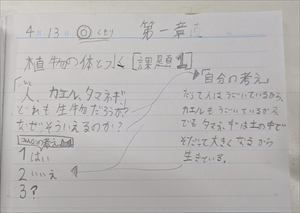 4 13 ◎ くもり 第一章
植物の体とつく
[課題1]
「人、カエル、タマネギ」
どれも生物だろうか?
なぜそういえるのか?
1 はい
2 いいえ
3 ?
「自分の考え」
だって人はうごいているから、
カエルもうごいているから
でもタマネギは土の中で
そだって大きくなるから
生きている。